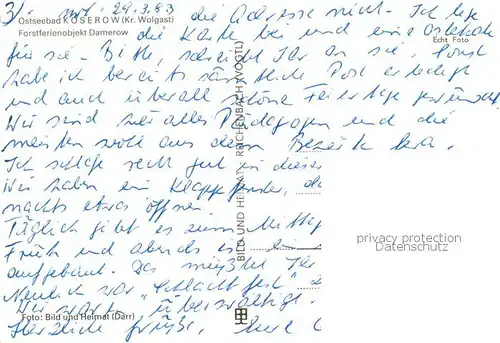 3) 29.3.83 die Adresse nicht. Ich lege
Ostseebad KOSEROW (Kr. Wolgast)
Forstferienobjekt Damerow
die Karte bei und eine Osterkarte
Echt Foto
für sie. Bitte, schreibt Ihr an sie. Sonst
habe ich bereits sämtliche Post erledigt
und auch überall schöne Feiertage gewünscht.
Wir sind hier alles Pädagogen und die
meisten wohl aus dem Bezirk
Ich schlafe recht gut in dieser
Wir haben ein Klappfenster, da
nachts etwas öffnen.
Täglich gibt es zum Mittag
Früh und abends ist ein
aufgebaut. Das müßtet Ihr
Neulich war „Schlachtfest"
Wir waren überwältigt.
Foto: Bild und Heimat (Darr)
Herzliche Grüße, Eure
BILD UND HEIMAT REICHENBACH (VOGTL)
privacy protection
Datenschutz